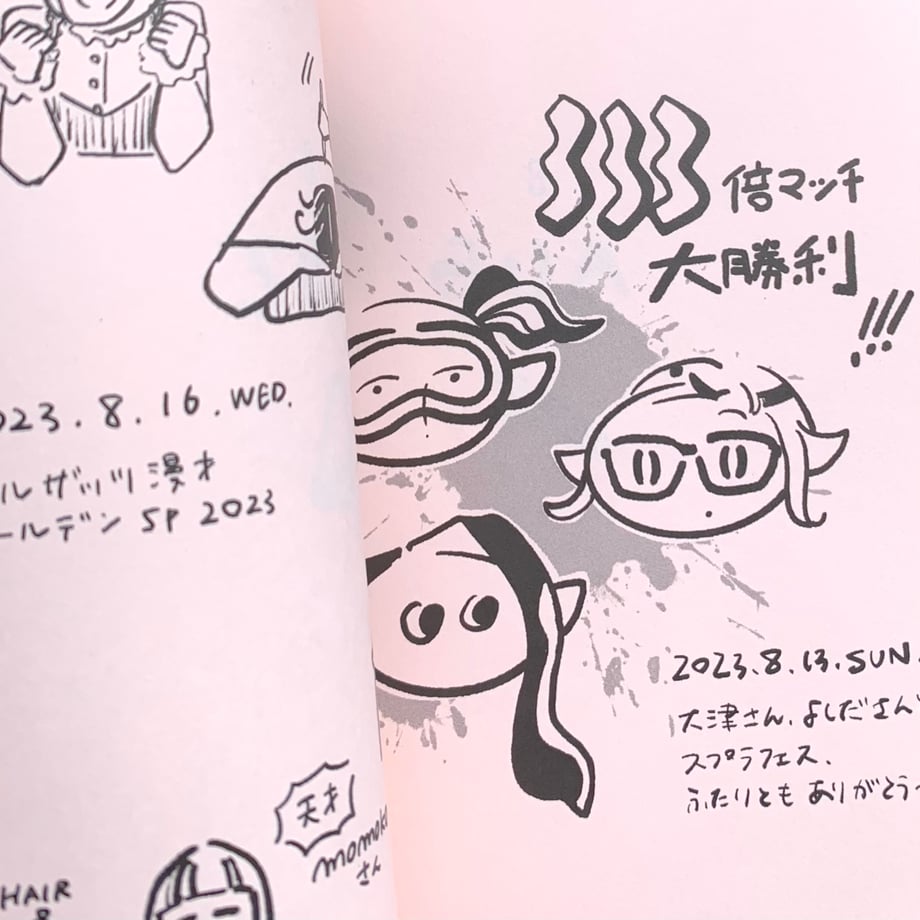 023.8.16.WED.
ルザッツ漫才
ールデン SP 2023
天才
momoko
さん
HAIR
&
333倍マッチ
大勝利
!!!
2023.8.13.SUN.
大津さん、よしださん
スプラフェス、
ふたりとも ありがとう